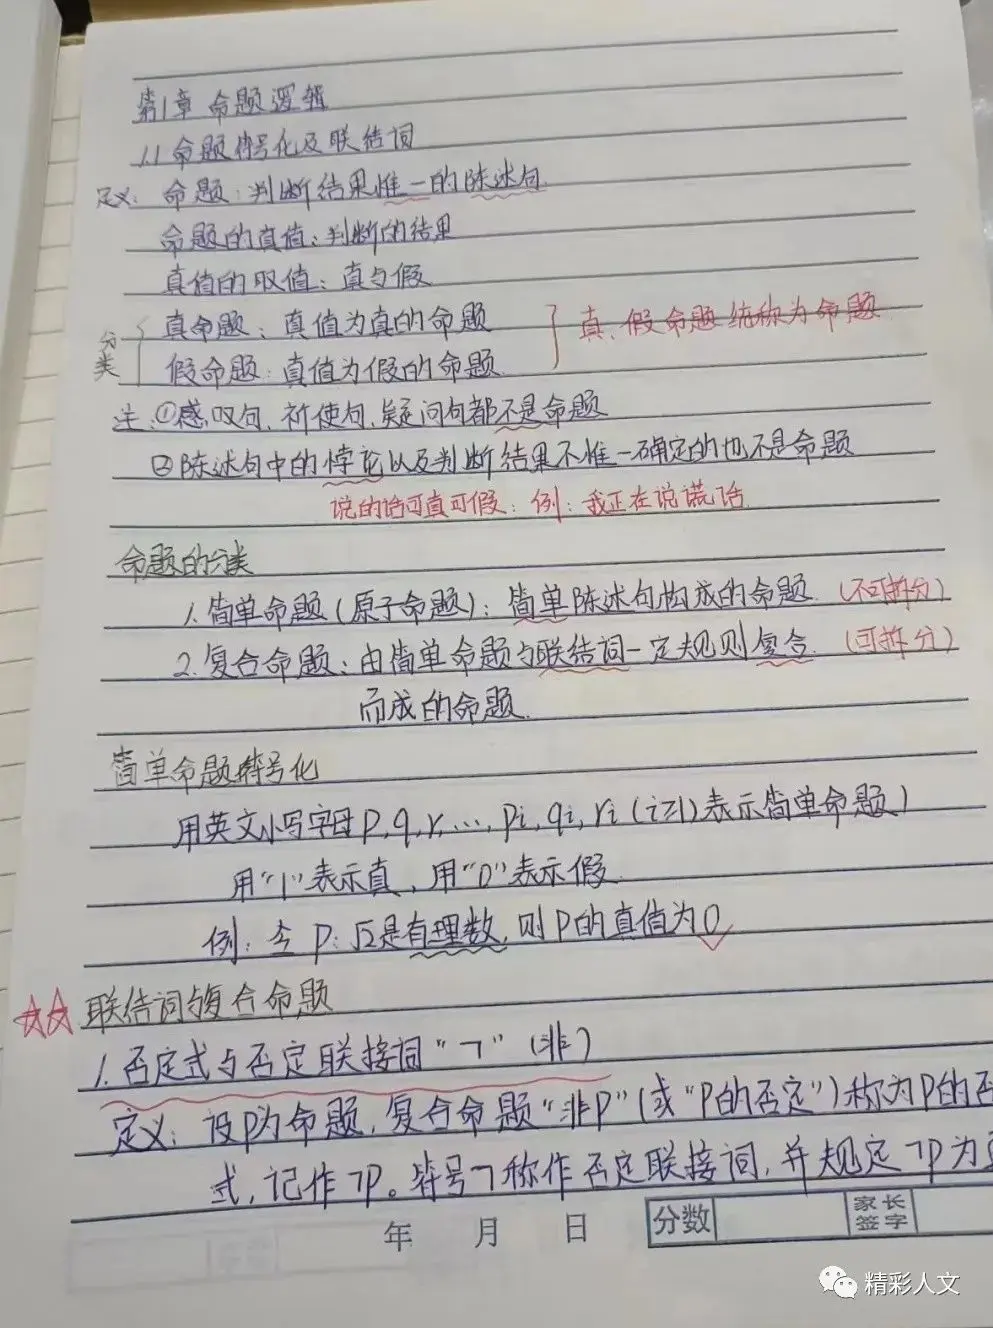 第1章 命题逻辑
1.1 命题符号化及联结词
定义: 命题:判断结果惟一的陈述句
命题的真值:判断的结果
真值的取值:真与假
分类 真命题:真值为真的命题
假命题:真值为假的命题
真、假命题统称为命题
注:①感叹句、祈使句、疑问句都不是命题
②陈述句中的悖论以及判断结果不惟一确定的也不是命题
说的话可真可假:例:我正在说谎话
命题的分类
1.简单命题(原子命题):简单陈述句构成的命题 (不可拆分)
2.复合命题:由简单命题与联结词一定规则复合 (可拆分)
而成的命题
简单命题符号化
用英文小写字母p,q,r,…,pi,qi,ri(i≥1)表示简单命题)
用“1”表示真,用“0”表示假
例:令 p:√2是有理数,则P的真值为0
联结词与复合命题
1.否定式与否定联接词“¬”(非)
定义:设p为命题,复合命题“非p”(或“P的否定”)称为P的否
式,记作¬p。符号¬称作否定联接词,并规定¬p为
年 月 日 分数 家长签字
精彩人文